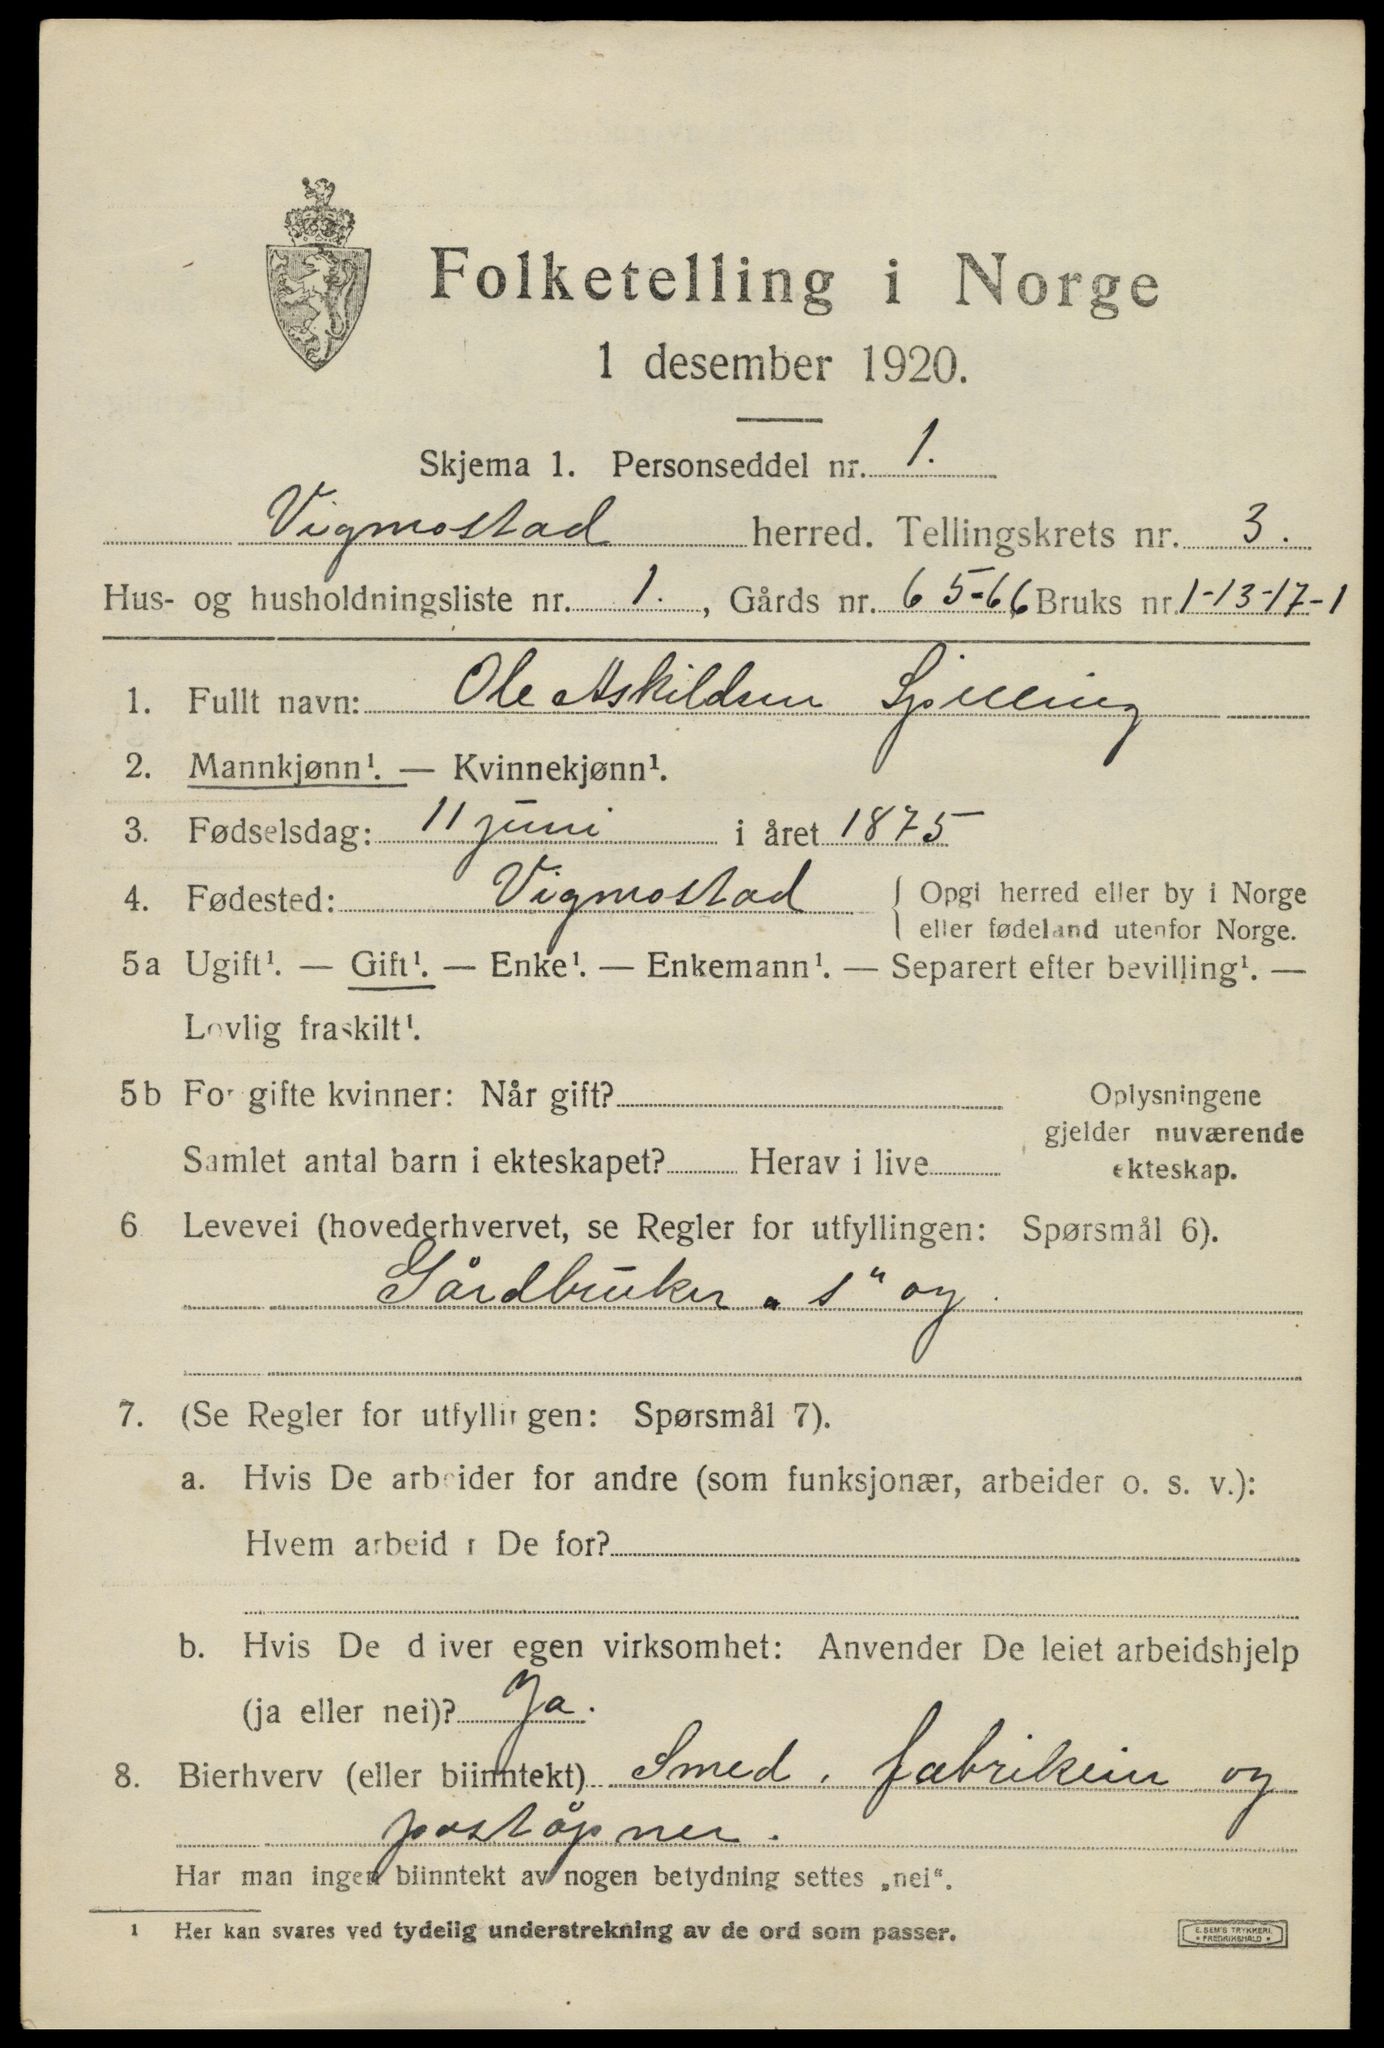 Folketelling i Norge
1 desember 1920.
Skjema 1. Personseddel nr. 1.
Vigmostad herred. Tellingskrets nr. 3.
Hus- og husholdningsliste nr. 1., Gårds nr. 65-66 Bruks nr. 1-13-17-1
1. Fullt navn: Ole Askildsen
2. Mannkjønn¹. — Kvinnekjønn¹.
3. Fødselsdag: 11 juni i året 1875
4. Fødested: Vigmostad { Opgi herred eller by i Norge
eller fødeland utenfor Norge.
5a Ugift¹. — Gift¹. — Enke¹. — Enkemann¹. — Separert efter bevilling¹. —
Lovlig fraskilt¹.
5b For gifte kvinner: Når gift? Oplysningene
gjelder nuværende
Samlet antal barn i ekteskapet? Herav i live ekteskap.
6 Levevei (hovederhvervet, se Regler for utfyllingen: Spørsmål 6).
Gårdbruker „s“ og
7. (Se Regler for utfyllingen: Spørsmål 7).
a. Hvis De arbeider for andre (som funksjonær, arbeider o. s. v.):
Hvem arbeider De for?
b. Hvis De driver egen virksomhet: Anvender De leiet arbeidshjelp
(ja eller nei)? Ja.
8. Bierhverv (eller biinntekt) Smed, fabrikein og
poståpner.
Har man ingen biinntekt av nogen betydning settes „nei“.
1 Her kan svares ved tydelig understrekning av de ord som passer.
E. SEM'S TRYKKERI
FREDRIKSHALD